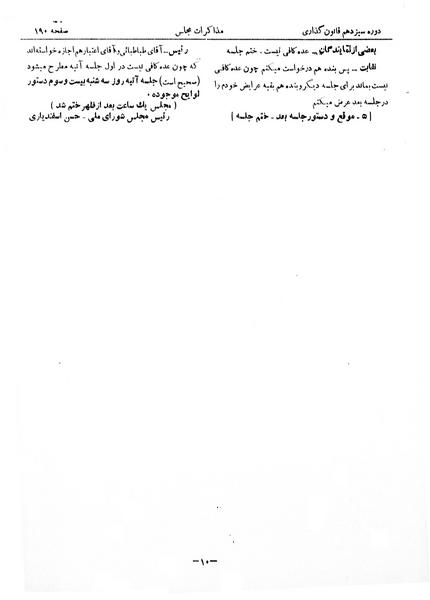 دوره سیزدهم قانون گذاری
مذاکرات مجلس
صفحه ۱۹۰
بعضی از نمایندگان ـ عده کافی نیست . ختم جلسه
نقابت ـ پس بنده هم درخواست میکنم چون عده کافی
نیست بماند برای جلسه دیگر و بنده هم بقیه عرایض خودم را
در جلسه بعد عرض میکنم
[ ۵ ـ موقع و دستور جلسه بعد ـ ختم جلسه ]
رئیس ـ آقای طباطبائی و آقای اعتبار هم اجازه خواسته‌اند
که چون عده کافی نیست در اول جلسه آتیه مطرح میشود
(صحیح است) جلسه آتیه روز سه شنبه بیست و سوم دستور
لوایح موجوده .
( مجلس یک ساعت بعد از ظهر ختم شد )
رئیس مجلس شورای ملی ـ حسن اسفندیاری
ـ۱۰ـ